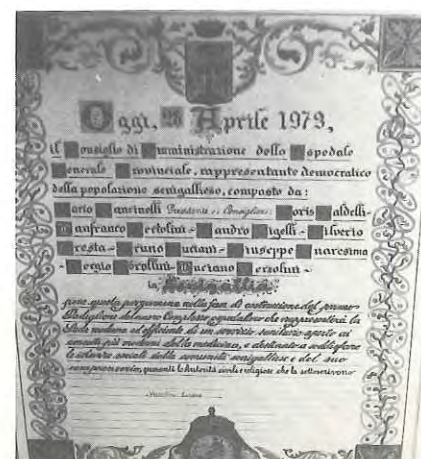 Oggi, 28 Aprile 1979,
il Consiglio di Amministrazione dello Ospedale
Generale Provinciale, rappresentante democratico
della popolazione senigalliese, composto da:
Mario Mancinelli Presidente e i Consiglieri: Doris Baldelli-
Gianfranco Bertolini- Sandro Bigelli- Silverio
Cresta- Bruno Luciani- Giuseppe Maresima
- Sergio Morollini- Luciano Versolini-
in Senigallia
pone questa pergamena nella fase di costruzione del primo
Padiglione del nuovo Complesso ospedaliero che rappresenterà la
Sede moderna ed efficiente di un servizio sanitario aperto ai
concetti più moderni della medicina, e destinato a soddisfare
le istanze sociali della comunità senigalliese e del suo
comprensorio, presenti le Autorità civili e religiose che la sottoscrivono